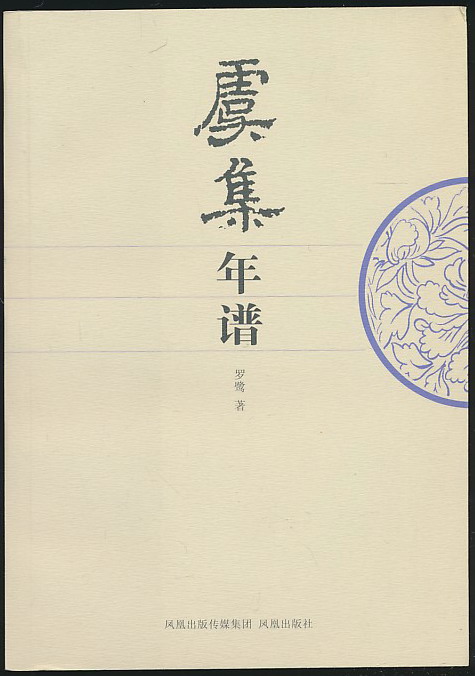 虞集
年谱
罗鹭 著
凤凰出版传媒集团 凤凰出版社